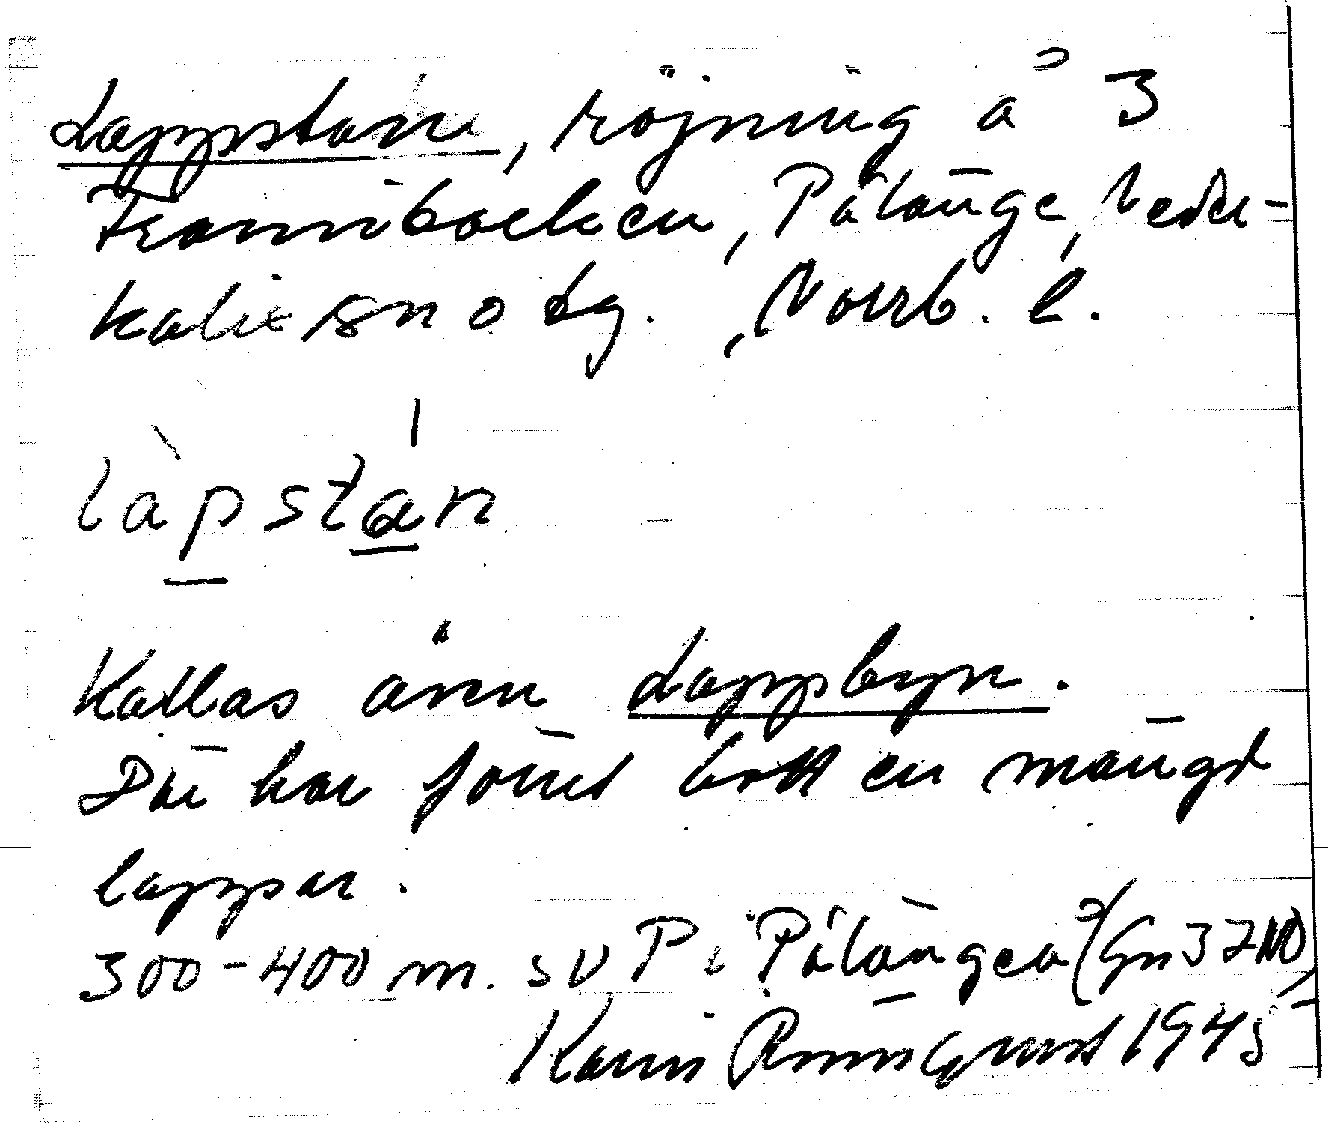 Lappstan, röjning å 3
Frannibacken, Pålänge, Neder-
kalix sn o tg., Norrb. l.
làpstán
Kallas även Lappbyn.
Där har förut bott en mängd
lappar.
300-400 m. SV P i Pålänge å (Gn 37 NO)
Karin Rönnqvist 1945